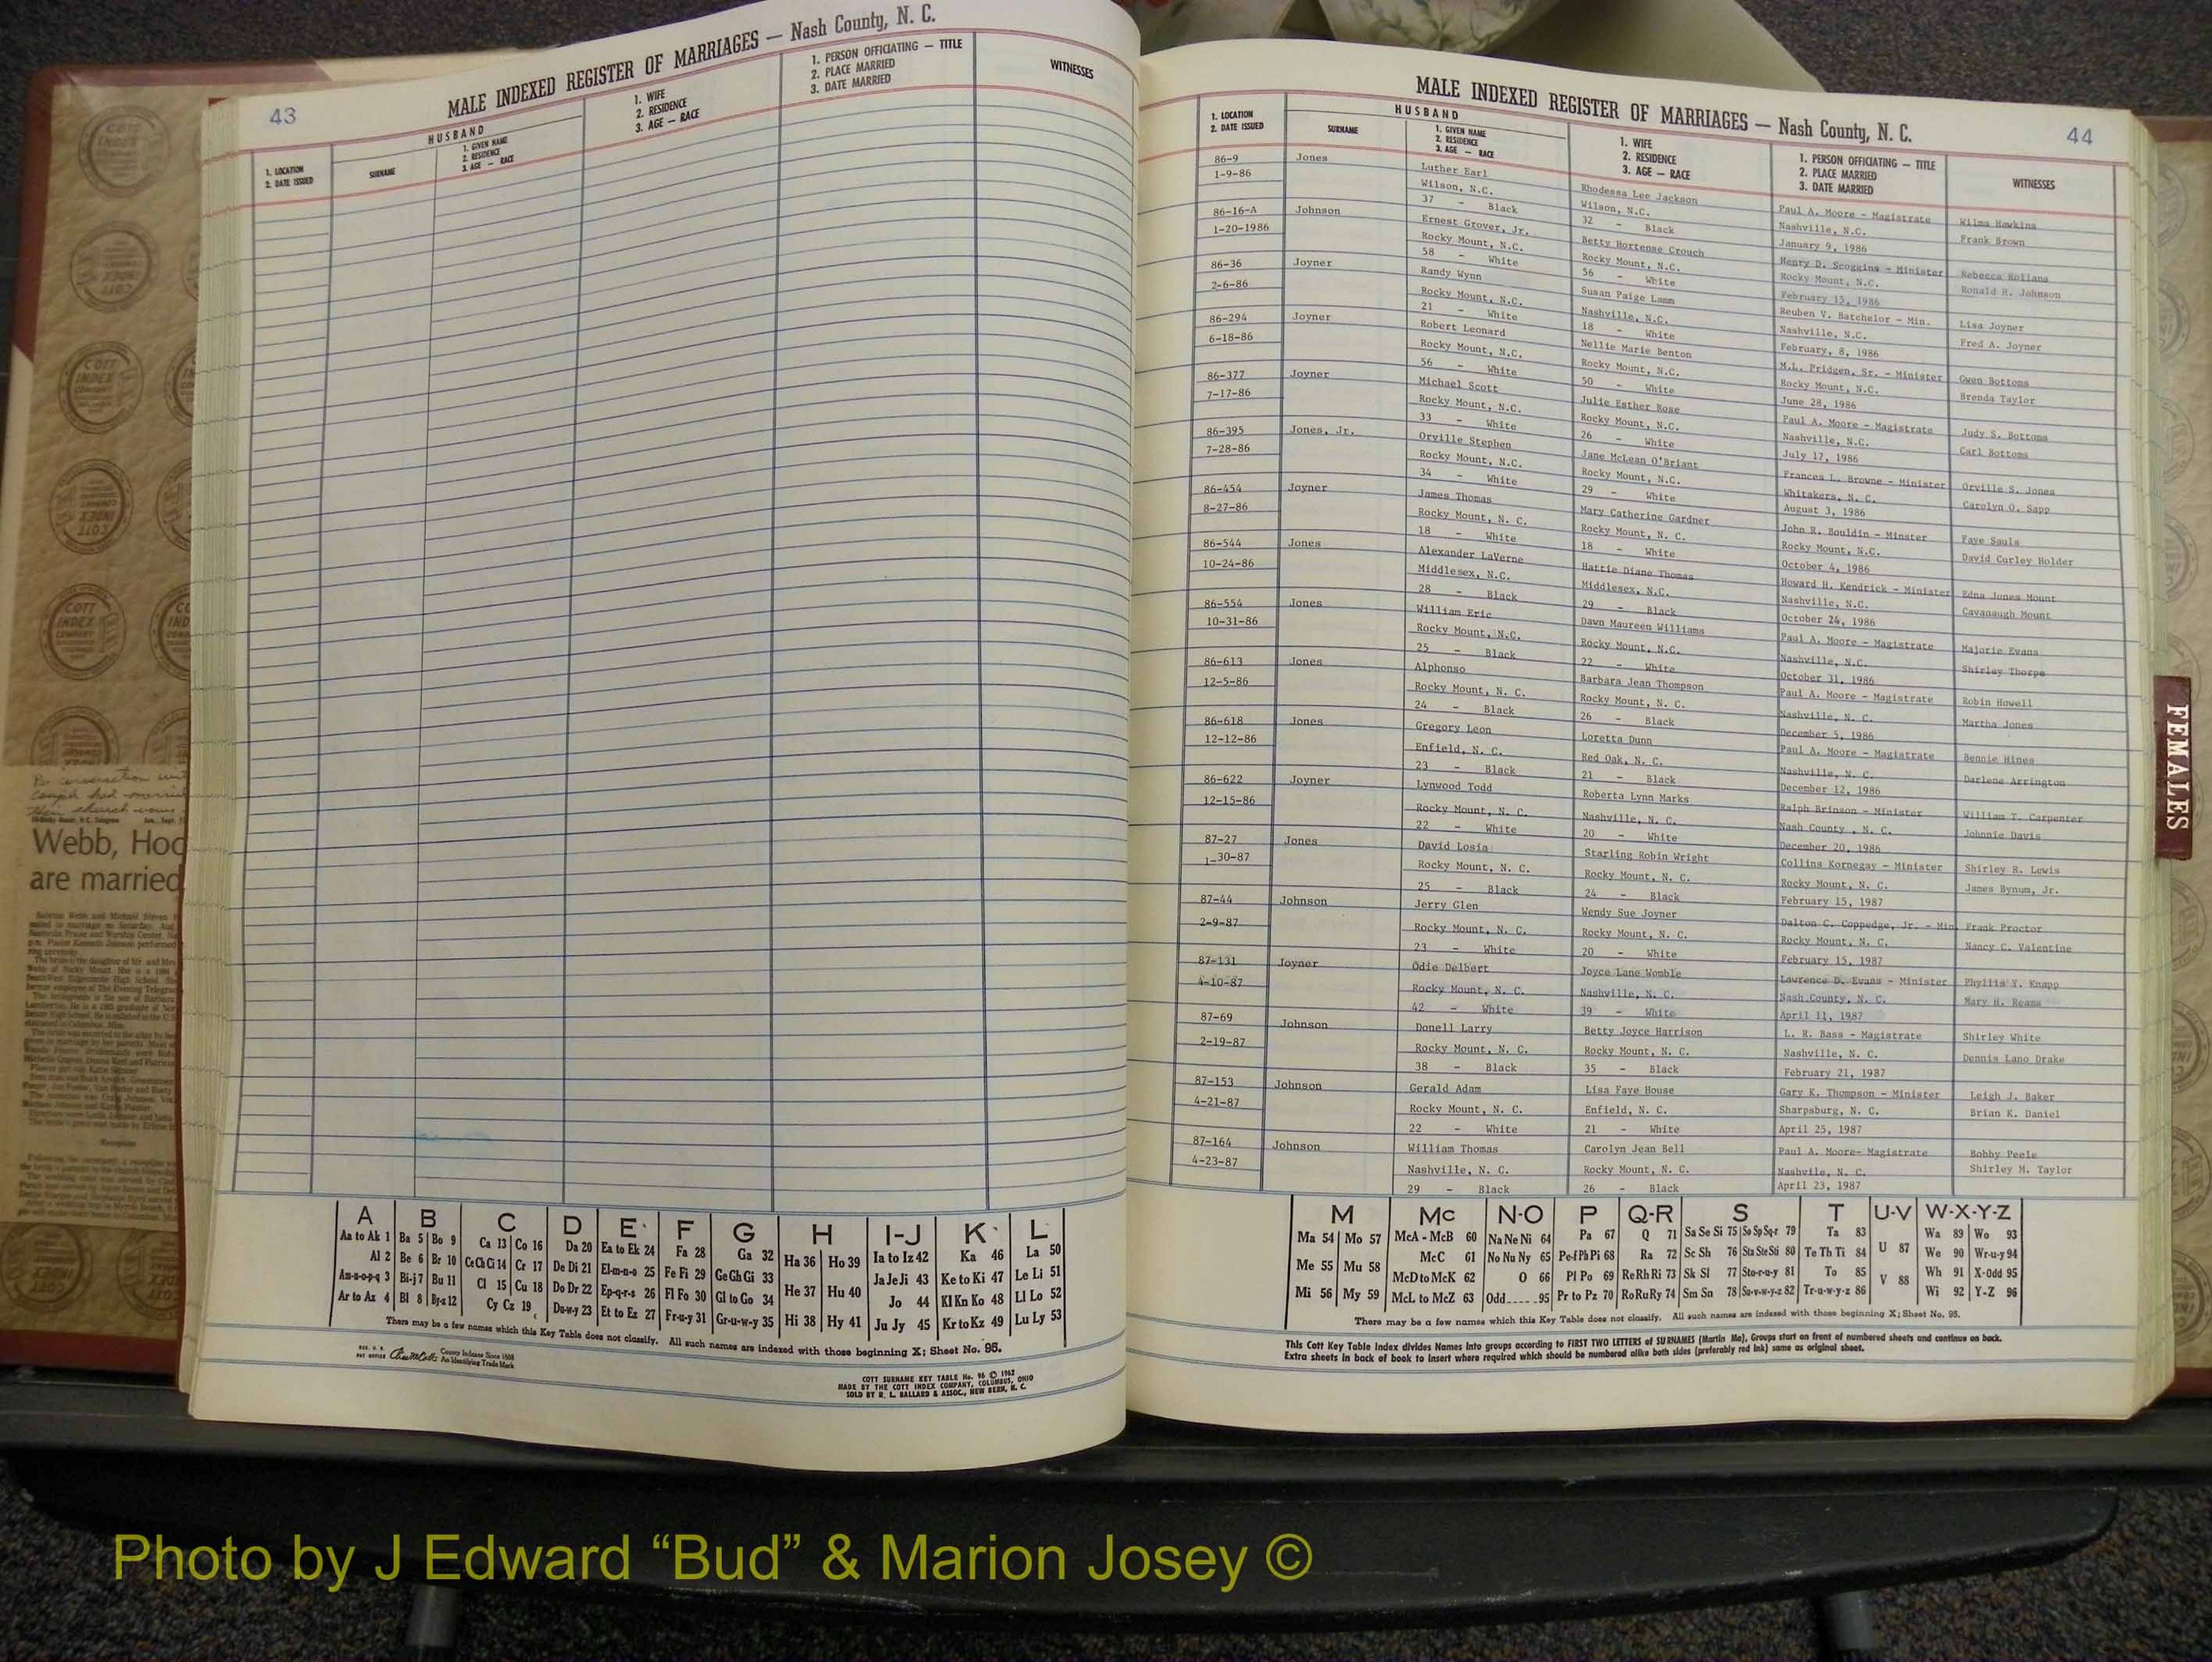 43
MALE INDEXED REGISTER OF MARRIAGES — Nash County, N. C.
1. LOCATION
2. DATE ISSUED
HUSBAND
SURNAME
1. GIVEN NAME
2. RESIDENCE
3. AGE — RACE
1. WIFE
2. RESIDENCE
3. AGE — RACE
1. PERSON OFFICIATING — TITLE
2. PLACE MARRIED
3. DATE MARRIED
WITNESSES
A
Aa to Ak 1
Al 2
Am-n-o-p-q 3
Ar to Az 4
B
Ba 5 Bo 9
Be 6 Br 10
Bi-j 7 Bu 11
Bl 8 By-z 12
C
Ca 13 Co 16
Ce Ch Ci 14 Cr 17
Cl 15 Cu 18
Cy Cz 19
D
Da 20
De Di 21
Do Dr 22
Du-w-y 23
E
Ea to Ek 24
El-m-n-o 25
Ep-q-r-s 26
Et to Ez 27
F
Fa 28
Fe Fi 29
Fl Fo 30
Fr-u-y 31
G
Ga 32
Ge Gh Gi 33
Gl to Go 34
Gr-u-w-y 35
H
Ha 36 Ho 39
He 37 Hu 40
Hi 38 Hy 41
I-J
Ia to Iz 42
Ja Je Ji 43
Jo 44
Ju Jy 45
K
Ka 46
Ke to Ki 47
Kl Kn Ko 48
Kr to Kz 49
L
La 50
Le Li 51
Ll Lo 52
Lu Ly 53
There may be a few names which this Key Table does not classify. All such names are indexed with those beginning X; Sheet No. 95.
County Indexes Since 1888
An Identifying Trade Mark
COTT SURNAME KEY TABLE No. 96 © 1962
MADE BY THE COTT INDEX COMPANY, COLUMBUS, OHIO
SOLD BY R. L. BALLARD & ASSOC., NEW BERN, N. C.
MALE INDEXED REGISTER OF MARRIAGES — Nash County, N. C.
44
1. LOCATION
2. DATE ISSUED
HUSBAND
SURNAME
1. GIVEN NAME
2. RESIDENCE
3. AGE — RACE
1. WIFE
2. RESIDENCE
3. AGE — RACE
1. PERSON OFFICIATING — TITLE
2. PLACE MARRIED
3. DATE MARRIED
WITNESSES
86-9 Jones Luther Earl Rhodessa Lee Jackson Paul A. Moore - Magistrate Wilma Hawkins
1-9-86 Wilson, N.C. Wilson, N.C. Nashville, N.C. Frank Brown
37 - Black 32 - Black January 9, 1986
86-16-A Johnson Ernest Grover, Jr. Betty Hortense Crouch Henry D. Scoggins - Minister Rebecca Rollans
1-20-1986 Rocky Mount, N.C. Rocky Mount, N.C. Rocky Mount, N.C. Ronald H. Johnson
58 - White 56 - White February 15, 1986
86-36 Joyner Randy Wynn Susan Paige Lamm Reuben V. Batchelor - Min. Lisa Joyner
2-6-86 Rocky Mount, N.C. Nashville, N.C. Nashville, N.C. Fred A. Joyner
21 - White 18 - White February, 8, 1986
86-294 Joyner Robert Leonard Nellie Marie Benton M.L. Pridgen, Sr. - Minister Gwen Bottoms
6-18-86 Rocky Mount, N.C. Rocky Mount, N.C. Rocky Mount, N.C. Brenda Taylor
56 - White 50 - White June 28, 1986
86-377 Joyner Michael Scott Julie Esther Rose Paul A. Moore - Magistrate Judy S. Bottoms
7-17-86 Rocky Mount, N.C. Rocky Mount, N.C. Nashville, N.C. Carl Bottoms
33 - White 26 - White July 17, 1986
86-395 Jones, Jr. Orville Stephen Jane McLean O'Briant Frances L. Browne - Minister Orville S. Jones
7-28-86 Rocky Mount, N.C. Rocky Mount, N.C. Whitakers, N. C. Carolyn O. Sapp
34 - White 29 - White August 3, 1986
86-454 Joyner James Thomas Mary Catherine Gardner John R. Bouldin - Minster Faye Sauls
8-27-86 Rocky Mount, N. C. Rocky Mount, N. C. Rocky Mount, N.C. David Curley Holder
18 - White 18 - White October 4, 1986
86-544 Jones Alexander LaVerne Hattie Diane Thomas Howard H. Kendrick - Minister Edna Jones Mount
10-24-86 Middlesex, N.C. Middlesex, N.C. Nashville, N.C. Cavanaugh Mount
28 - Black 29 - Black October 24, 1986
86-554 Jones William Eric Dawn Maureen Williams Paul A. Moore - Magistrate Majorie Evans
10-31-86 Rocky Mount, N.C. Rocky Mount, N.C. Nashville, N.C. Shirley Thorpe
25 - Black 22 - White October 31, 1986
86-613 Jones Alphonso Barbara Jean Thompson Paul A. Moore - Magistrate Robin Howell
12-5-86 Rocky Mount, N. C. Rocky Mount, N. C. Nashville, N. C. Martha Jones
24 - Black 26 - Black December 5, 1986
86-618 Jones Gregory Leon Loretta Dunn Paul A. Moore - Magistrate Bennie Hines
12-12-86 Enfield, N. C. Red Oak, N. C. Nashville, N. C. Darlene Arrington
23 - Black 21 - Black December 12, 1986
86-622 Joyner Lynwood Todd Roberta Lynn Marks Ralph Brinson - Minister William T. Carpenter
12-15-86 Rocky Mount, N. C. Nashville, N. C. Nash County , N. C. Johnnie Davis
22 - White 20 - White December 20, 1986
87-27 Jones David Losia Starling Robin Wright Collins Kornegay - Minister Shirley R. Lewis
1-30-87 Rocky Mount, N. C. Rocky Mount, N. C. Rocky Mount, N. C. James Bynum, Jr.
25 - Black 24 - Black February 15, 1987
87-44 Johnson Jerry Glen Wendy Sue Joyner Dalton C. Coppedge, Jr. - Min Frank Proctor
2-9-87 Rocky Mount, N. C. Rocky Mount, N. C. Rocky Mount, N. C. Nancy C. Valentine
23 - White 20 - White February 15, 1987
87-131 Joyner Odie Delbert Joyce Lane Womble Lawrence D. Evans - Minister Phyllis Y. Knapp
4-10-87 Rocky Mount, N. C. Nashville, N. C. Nash County, N. C. Mary H. Reams
42 - White 39 - White April 11, 1987
87-69 Johnson Donell Larry Betty Joyce Harrison L. R. Bass - Magistrate Shirley White
2-19-87 Rocky Mount, N. C. Rocky Mount, N. C. Nashville, N. C. Dennis Lano Drake
38 - Black 35 - Black February 21, 1987
87-153 Johnson Gerald Adam Lisa Faye House Gary K. Thompson - Minister Leigh J. Baker
4-21-87 Rocky Mount, N. C. Enfield, N. C. Sharpsburg, N. C. Brian K. Daniel
22 - White 21 - White April 25, 1987
87-164 Johnson William Thomas Carolyn Jean Bell Paul A. Moore- Magistrate Bobby Peele
4-23-87 Nashville, N. C. Rocky Mount, N. C. Nashvile, N. C. Shirley M. Taylor
29 - Black 26 - Black April 23, 1987
M
Ma 54 Mo 57
Me 55 Mu 58
Mi 56 My 59
Mc
McA - McB 60
McC 61
McD to McK 62
McL to McZ 63
N-O
Na Ne Ni 64
No Nu Ny 65
O 66
Odd 95
P
Pa 67
Pe-f Ph Pi 68
Pl Po 69
Pr to Pz 70
Q-R
Q 71
Ra 72
Re Rh Ri 73
Ro Ru Ry 74
S
Sa Se Si 75 So Sp Sq-r 79
Sc Sh 76 Sta Ste Sti 80
Sk Sl 77 Sto-r-u-y 81
Sm Sn 78 Su-v-w-y-z 82
T
Ta 83
Te Th Ti 84
To 85
Tr-u-w-y-z 86
U-V
U 87
V 88
W-X-Y-Z
Wa 89 Wo 93
We 90 Wr-u-y 94
Wh 91 X-Odd 95
Wi 92 Y-Z 96
There may be a few names which this Key Table does not classify. All such names are indexed with those beginning X; Sheet No. 95.
This Cott Key Table Index divides Names into groups according to FIRST TWO LETTERS of SURNAMES (Martin Ma). Groups start on front of numbered sheets and continue on back.
Extra sheets in back of book to insert where required which should be numbered alike both sides (preferably red ink) same as original sheet.
FEMALES
COTT
INDEX
COMPANY
Webb, Hoo
are married
Photo by J Edward “Bud” & Marion Josey ©